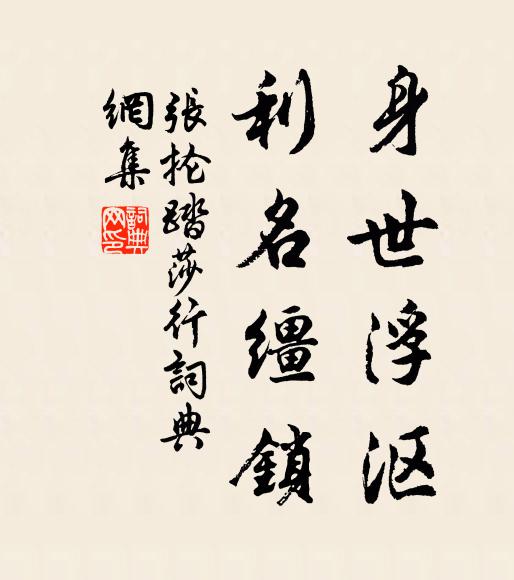 身世浮沤
利名缰鎖
張抡踏莎行詞典
網集
詞典網印